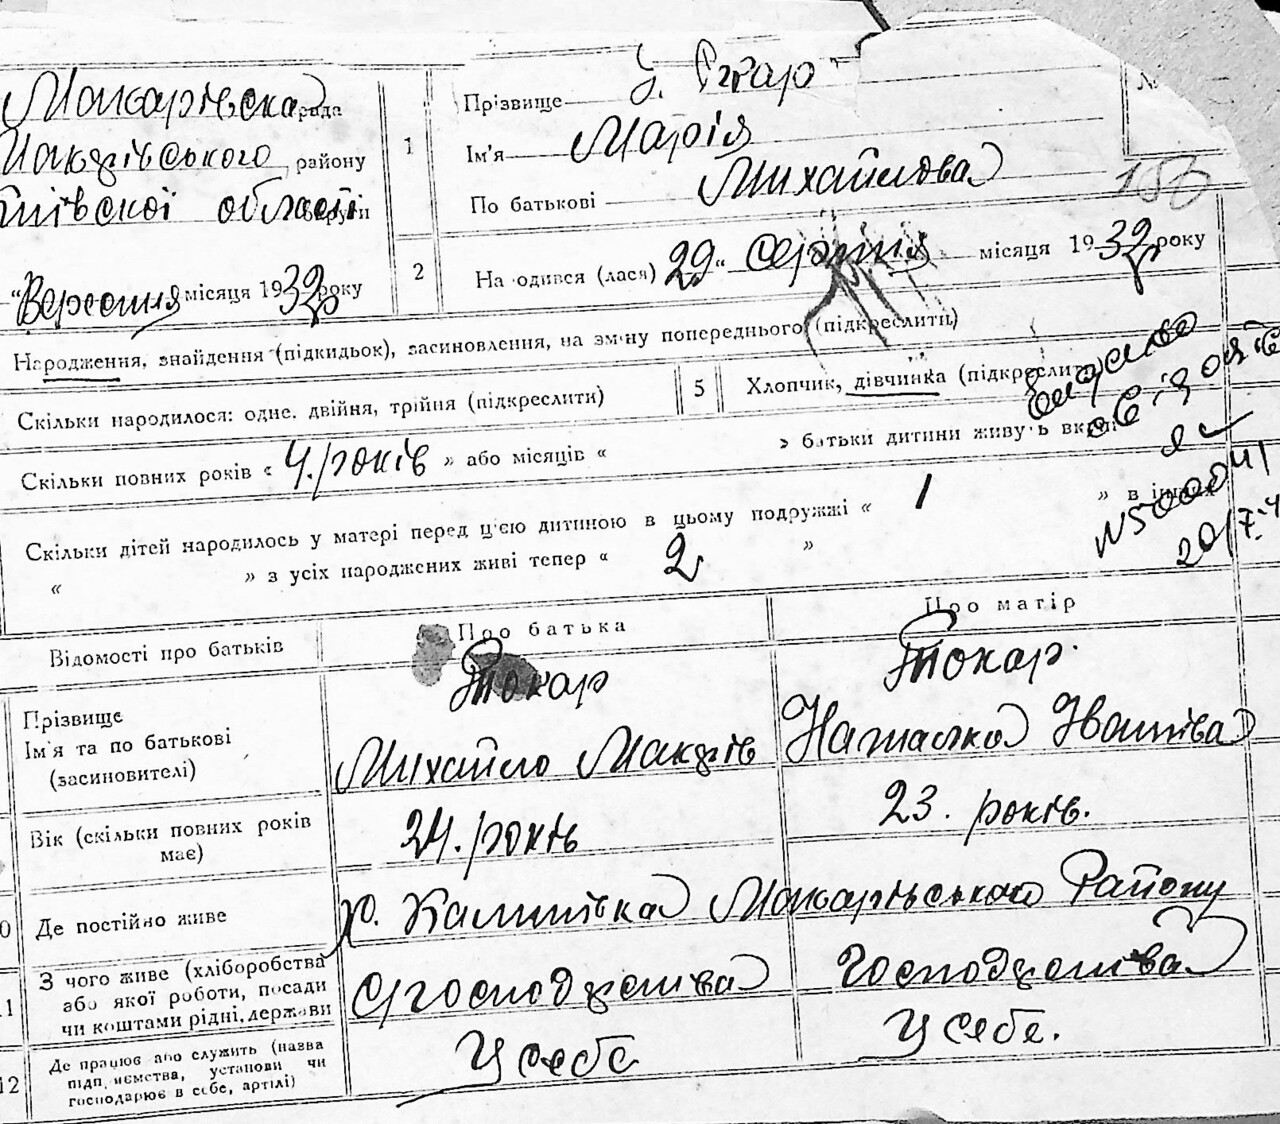 Макарівска рада
Макарівського району
Київскої області округи
"Вересння місяця 1932 року
1
Прізвище
Ім'я Марія
По батькові Михайлова
№
2
На одився (лася) 29 " серпня місяця 1932 року
Народження, знайдення (підкидьок), засиновлення, на зміну попереднього (підкреслити)
Скільки народилося: одне, двійня, трійня (підкреслити)
5
Хлопчик, дівчинка (підкреслити)
Скільки повних років « 4. років » або місяців « » батьки дитини живуть вкупі
Скільки дітей народилось у матері перед цією дитиною в цьому подружжі « 1 » в інших
« » з усіх народжених живі тепер « 2 »
20/7
Відомості про батьків
Про батька
Про матір
Прізвище
Ім'я та по батькові
(засиновителі)
Токар
Михайло Макарів
Токар.
Наталка Іванівва
Вік (скільки повних років
має)
24. років
23. років.
0
Де постійно живе
х. Калинівка Макарівського Району
11
З чого живе (хліборобства
або якої роботи, посади
чи коштами рідні, держави
Сгосподарства
Господарства
12
Де працює або служить (назва
підп иємства, установи чи
господарює в себе, артілі)
У себе
У себе.